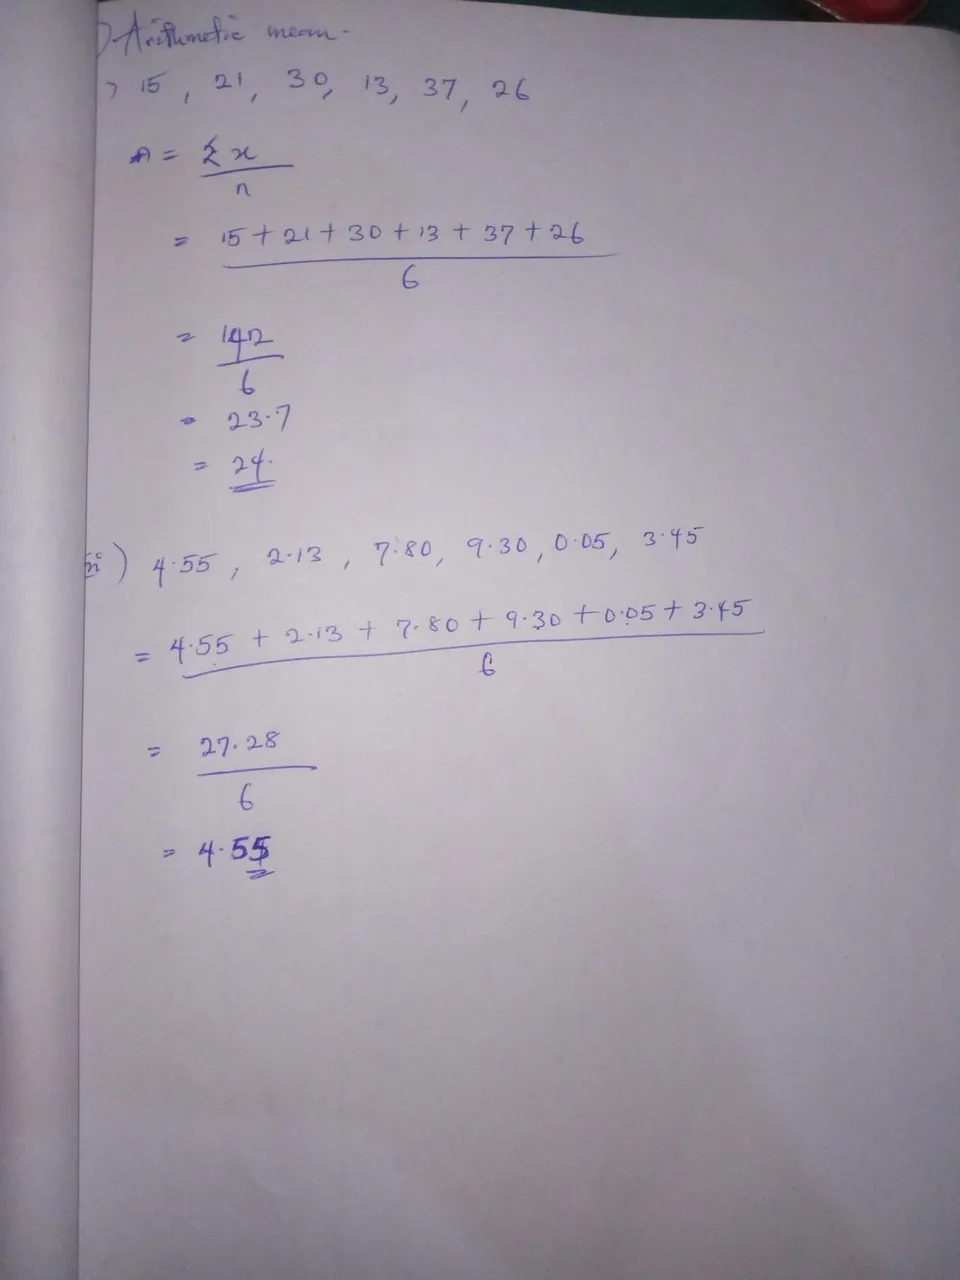 ) Arithmetic mean-
) 15 , 21 , 30, 13, 37, 26
A = Σx
n
= 15 + 21 + 30 + 13 + 37 + 26
6
= 142
6
= 23.7
= 24.
ii) 4.55 , 2.13 , 7.80, 9.30, 0.05, 3.45
= 4.55 + 2.13 + 7.80 + 9.30 + 0.05 + 3.45
6
= 27.28
6
= 4.55